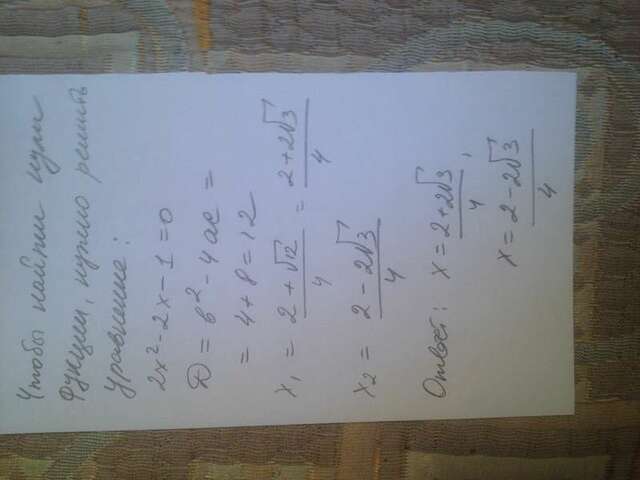 Чтобы найти нули
фукции, нужно решить
уравнение:
2x² - 2x - 1 = 0
D = b² - 4ac =
= 4 + 8 = 12
x₁ = (2 + √12)/4 = (2 + 2√3)/4
x₂ = (2 - 2√3)/4
Ответ: x = (2 + 2√3)/4,
x = (2 - 2√3)/4